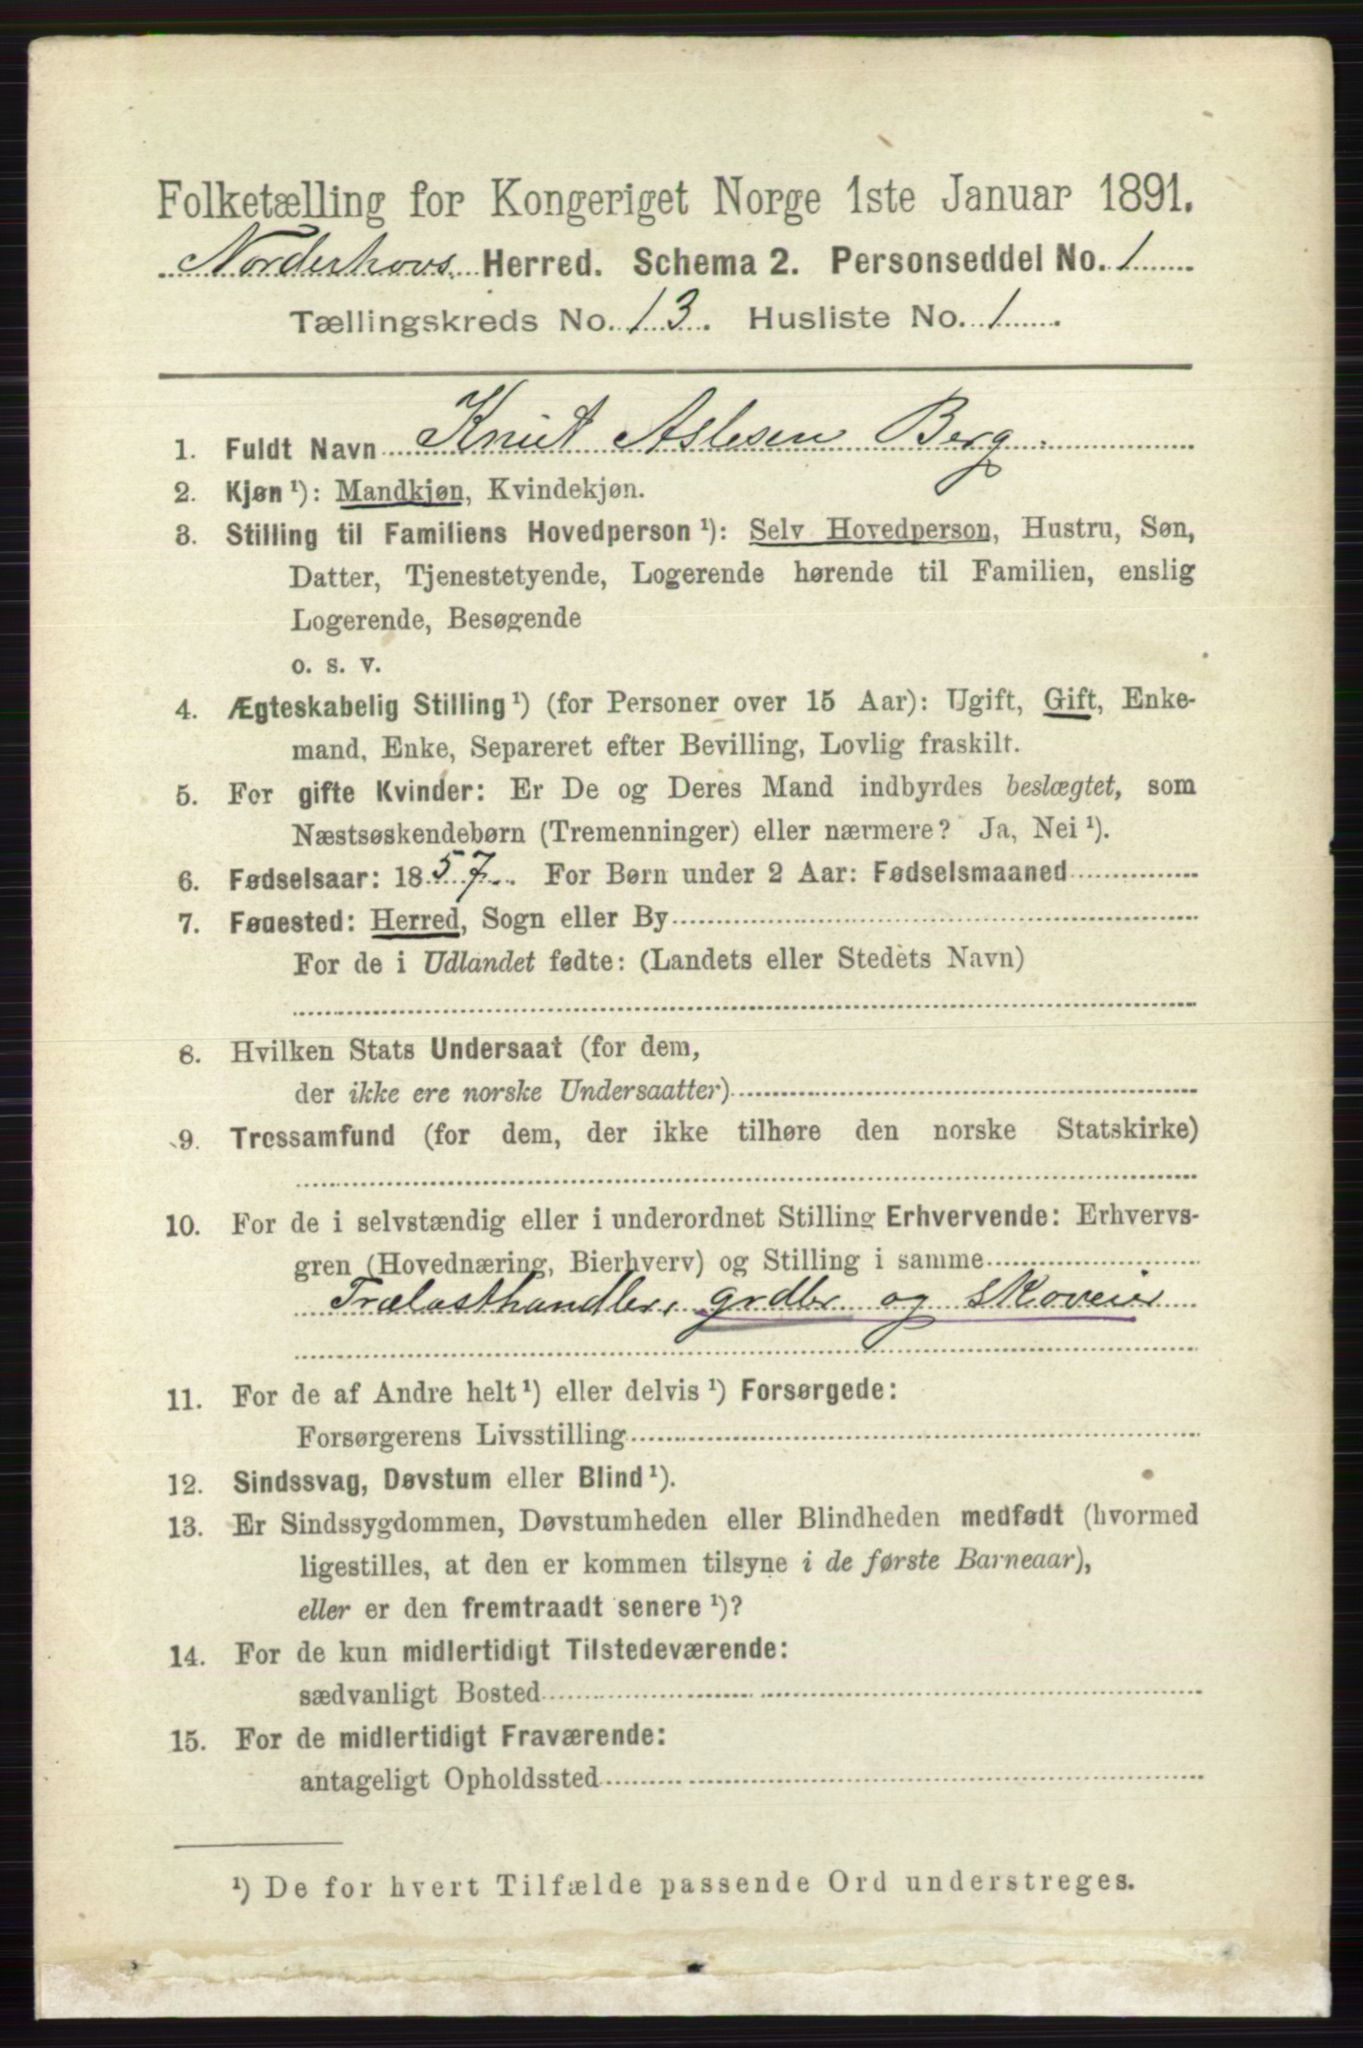 Folketælling for Kongeriget Norge 1ste Januar 1891.
Norderhovs Herred. Schema 2. Personseddel No. 1
Tællingskreds No. 13. Husliste No. 1
1. Fuldt Navn Knut Aslesen Berg.
2. Kjøn ¹): Mandkjøn, Kvindekjøn.
3. Stilling til Familiens Hovedperson ¹): Selv Hovedperson, Hustru, Søn,
Datter, Tjenestetyende, Logerende hørende til Familien, enslig
Logerende, Besøgende
o. s. v.
4. Ægteskabelig Stilling ¹) (for Personer over 15 Aar): Ugift, Gift, Enke-
mand, Enke, Separeret efter Bevilling, Lovlig fraskilt.
5. For gifte Kvinder: Er De og Deres Mand indbyrdes beslægtet, som
Næstsøskendebørn (Tremenninger) eller nærmere? Ja, Nei ¹).
6. Fødselsaar: 1857. For Børn under 2 Aar: Fødselsmaaned
7. Føuested: Herred, Sogn eller By
For de i Udlandet fødte: (Landets eller Stedets Navn)
8. Hvilken Stats Undersaat (for dem,
der ikke ere norske Undersaatter)
9. Trossamfund (for dem, der ikke tilhøre den norske Statskirke)
10. For de i selvstændig eller i underordnet Stilling Erhvervende: Erhvervs-
gren (Hovednæring, Bierhverv) og Stilling i samme
Trælasthandler, grdbr og skoveier
11. For de af Andre helt ¹) eller delvis ¹) Forsørgede:
Forsørgerens Livsstilling
12. Sindssvag, Døvstum eller Blind ¹).
13. Er Sindssygdommen, Døvstumheden eller Blindheden medfødt (hvormed
ligestilles, at den er kommen tilsyne i de første Barneaar),
eller er den fremtraadt senere ¹)?
14. For de kun midlertidigt Tilstedeværende:
sædvanligt Bosted
15. For de midlertidigt Fraværende:
antageligt Opholdssted
¹) De for hvert Tilfælde passende Ord understreges.